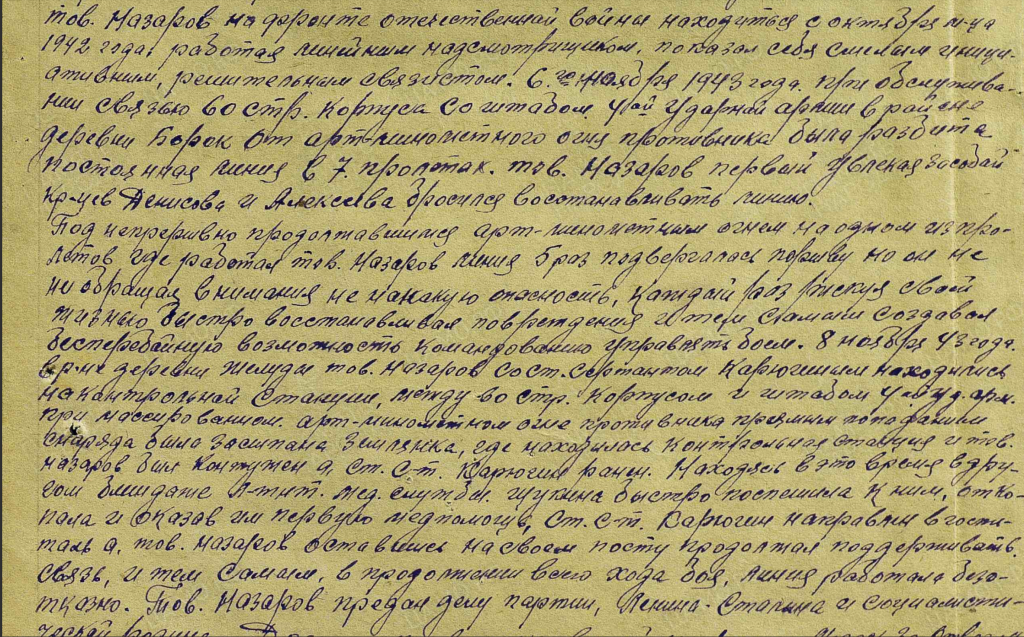 тов. Назаров на фронте отечественной войны находиться с октября м-ца
1942 года, работая линейным надсмотрщиком, показал себя смелым иници-
ативним, решительным связистом. 6го ноября 1943 года. при обслужива-
нии связью 60 стр. корпуса со штабом 4ой Ударной армии в районе
деревни Борок от арт-минометного огня противника была разбита
постоянная линия в 7 пролтак. тов. Назаров первый увлекая засобай
кр-цев Денисова и Алексеева бросился восстанавливать линию.
Под непрерывно продолжавшимся арт-минометным огнем на одном из про-
летов где работал тов. Назаров линия 5 раз подвергалось порыву но он не
не обращал внимания не на какую опасность, каждый раз рискуя своей
жизнью быстро восстанавливал повреждения и тем самым создавал
бесперебайную возможность командованию управлять боем. 8 ноября 43 года.
в р-не деревни тов. Назаров со ст. сержантом Карюгиным находились
на контрольной станции, между 60 стр. корпусом и штабом 4 уд. арм.
при массированом арт-минометном огне противника прямым попаданием
снаряда была засыпана землянка, где находилась контрольная станция и тов.
Назаров был контужен а, ст. с-т. Карюгин ранен. Находясь в это время в дру-
гом блиндаже л-тнт. мед. службы. Щукина быстро поспешила к ним, отко-
пала и оказав им первую медпомощь, ст. с-т. Карюгин направлен в госпи-
таль а, тов. Назаров оставшись на своем посту продолжал поддерживать.
связь, и тем самым, в продолжении всего хода боя, линия работала безо-
тказно. Тов. Назаров предан делу партии, Ленина-Сталина и социалисти-
ческой родине.